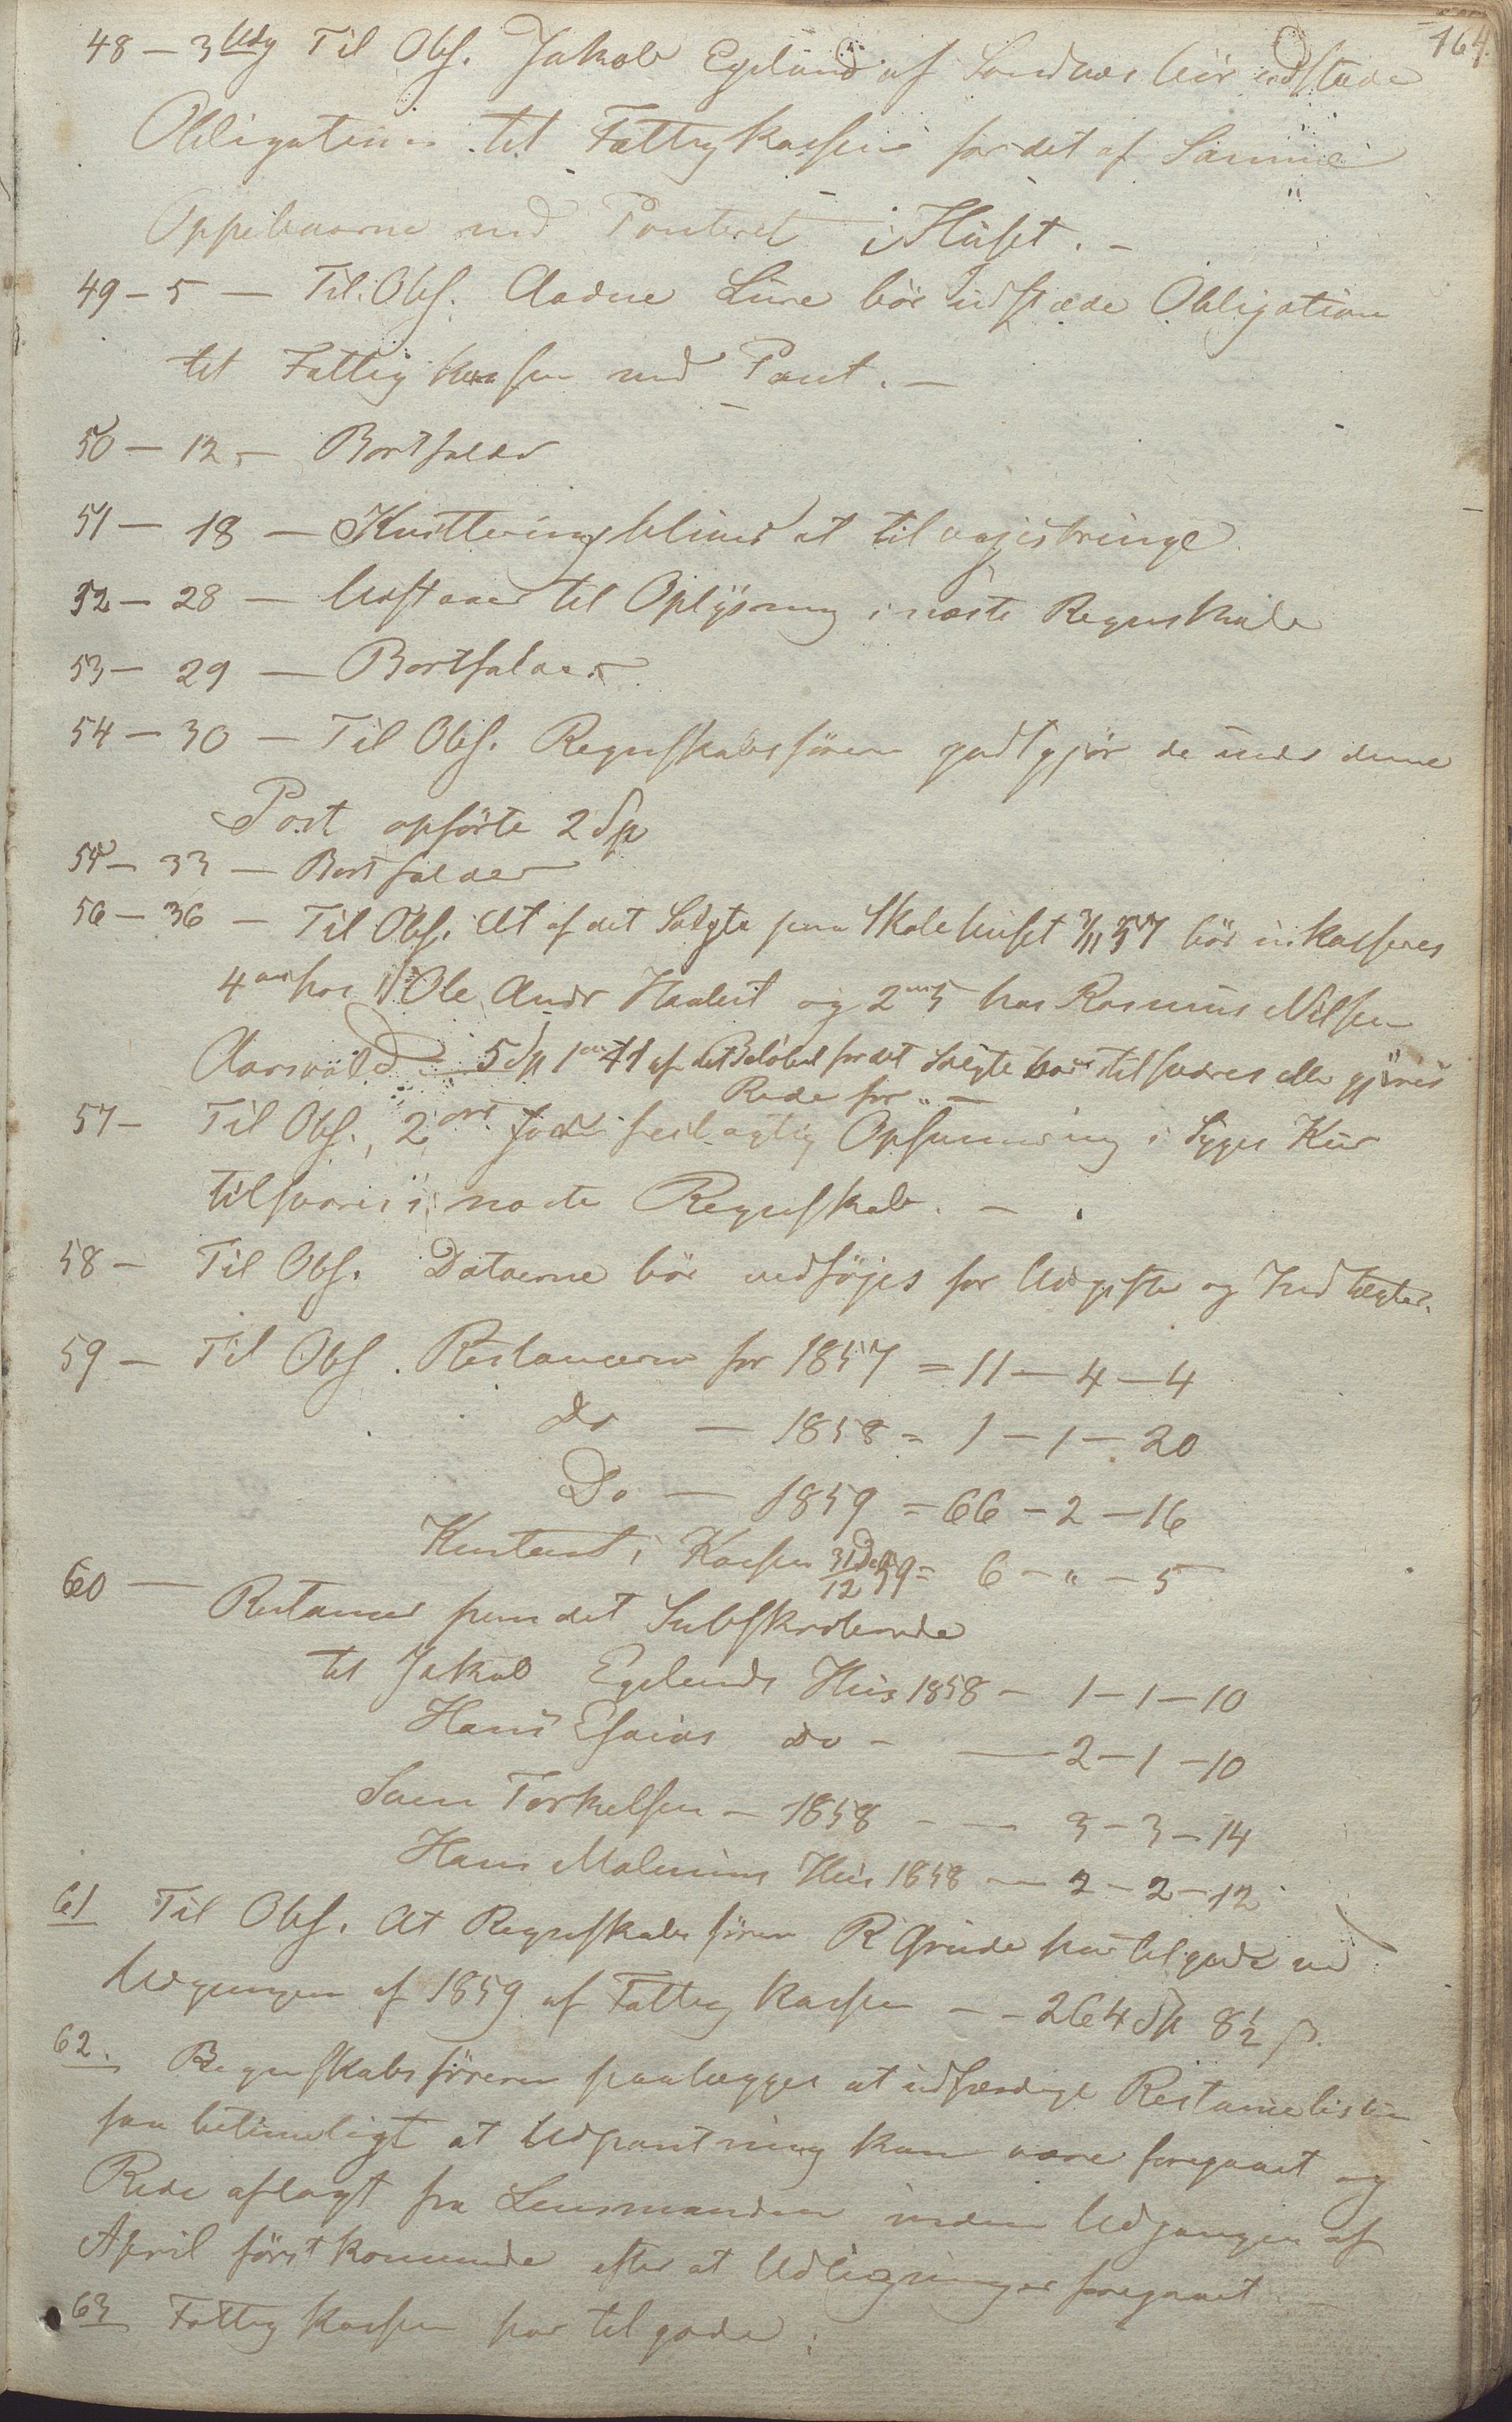 164.
48 – 3 Udg Til Obs. Jakob Egeland af Sandnes bör udstæde
Obligation til Fattigkassen for det af Samme
Oppebaarne med Panteret i Huset. –
49 – 5 – Til Obs. Aadne Lure bör udstæde Obligation
til Fattigkassen med Pant. –
50 – 12 – Bortfalder
51 – 18 – Kvittering bliver at tilvejebringe
52 – 28 – Udstaaer til Oplysning i næste Regnskab
53 – 29 – Bortfalder
54 – 30 – Til Obs. Regnskabsföreren godtgjör de under denne
Post opförte 2 Sp
55 – 33 – Bortfalder
56 – 36 – Til Obs. At af det Solgte paa Skolehuset 3/11 57 bör inkasseres
4 ort hos Ole Andr Haabet og 2 ort 5 hos Rasmus Nilsen
Aarsvold – 5 Sp 1 ort 41 af det Belöbet for det Solgte bör tilsvares eller gjöres
Rede for " –
57 – Til Obs. 2 ort for feilagtig Opsummering i Syges Kur
tilsvares i næste Regnskab. –
58 – Til Obs. Datoerne bör vedföjes for Udgifter og Indtægter.
59 – Til Obs. Restancerne for 1857 = 11 – 4 – 4
Do – 1858 = 1 – 1 – 20
Do – 1859 = 66 – 2 – 16
Kontant i Kassen 31/12 59 = 6 – " – 5
60 – Restancer paa det Subskriberede
til Jakob Egelands Hus 1858 – 1 – 1 – 10
Hans Esaias do – – 2 – 1 – 10
Sam Torkelsen – 1858 – – 3 – 3 – 14
Hans Malenius Hus 1858 – 2 – 2 – 12
61 Til Obs. At Regnskabsfören R Grude har tilgode ved
Udgangen af 1859 af Fattigkassen – – 264 Sp 8½ ß.
62. Regnskabsföreren paalægges at udfærdige Restancelisten
saa betimeligt at Udpantning kan være foregaaet og
Rede aflagt fra Lensmanden inden Udgangen af
April förstkommende efter at Udligninger foregaaet. –
63 Fattigkassen har tilgode: